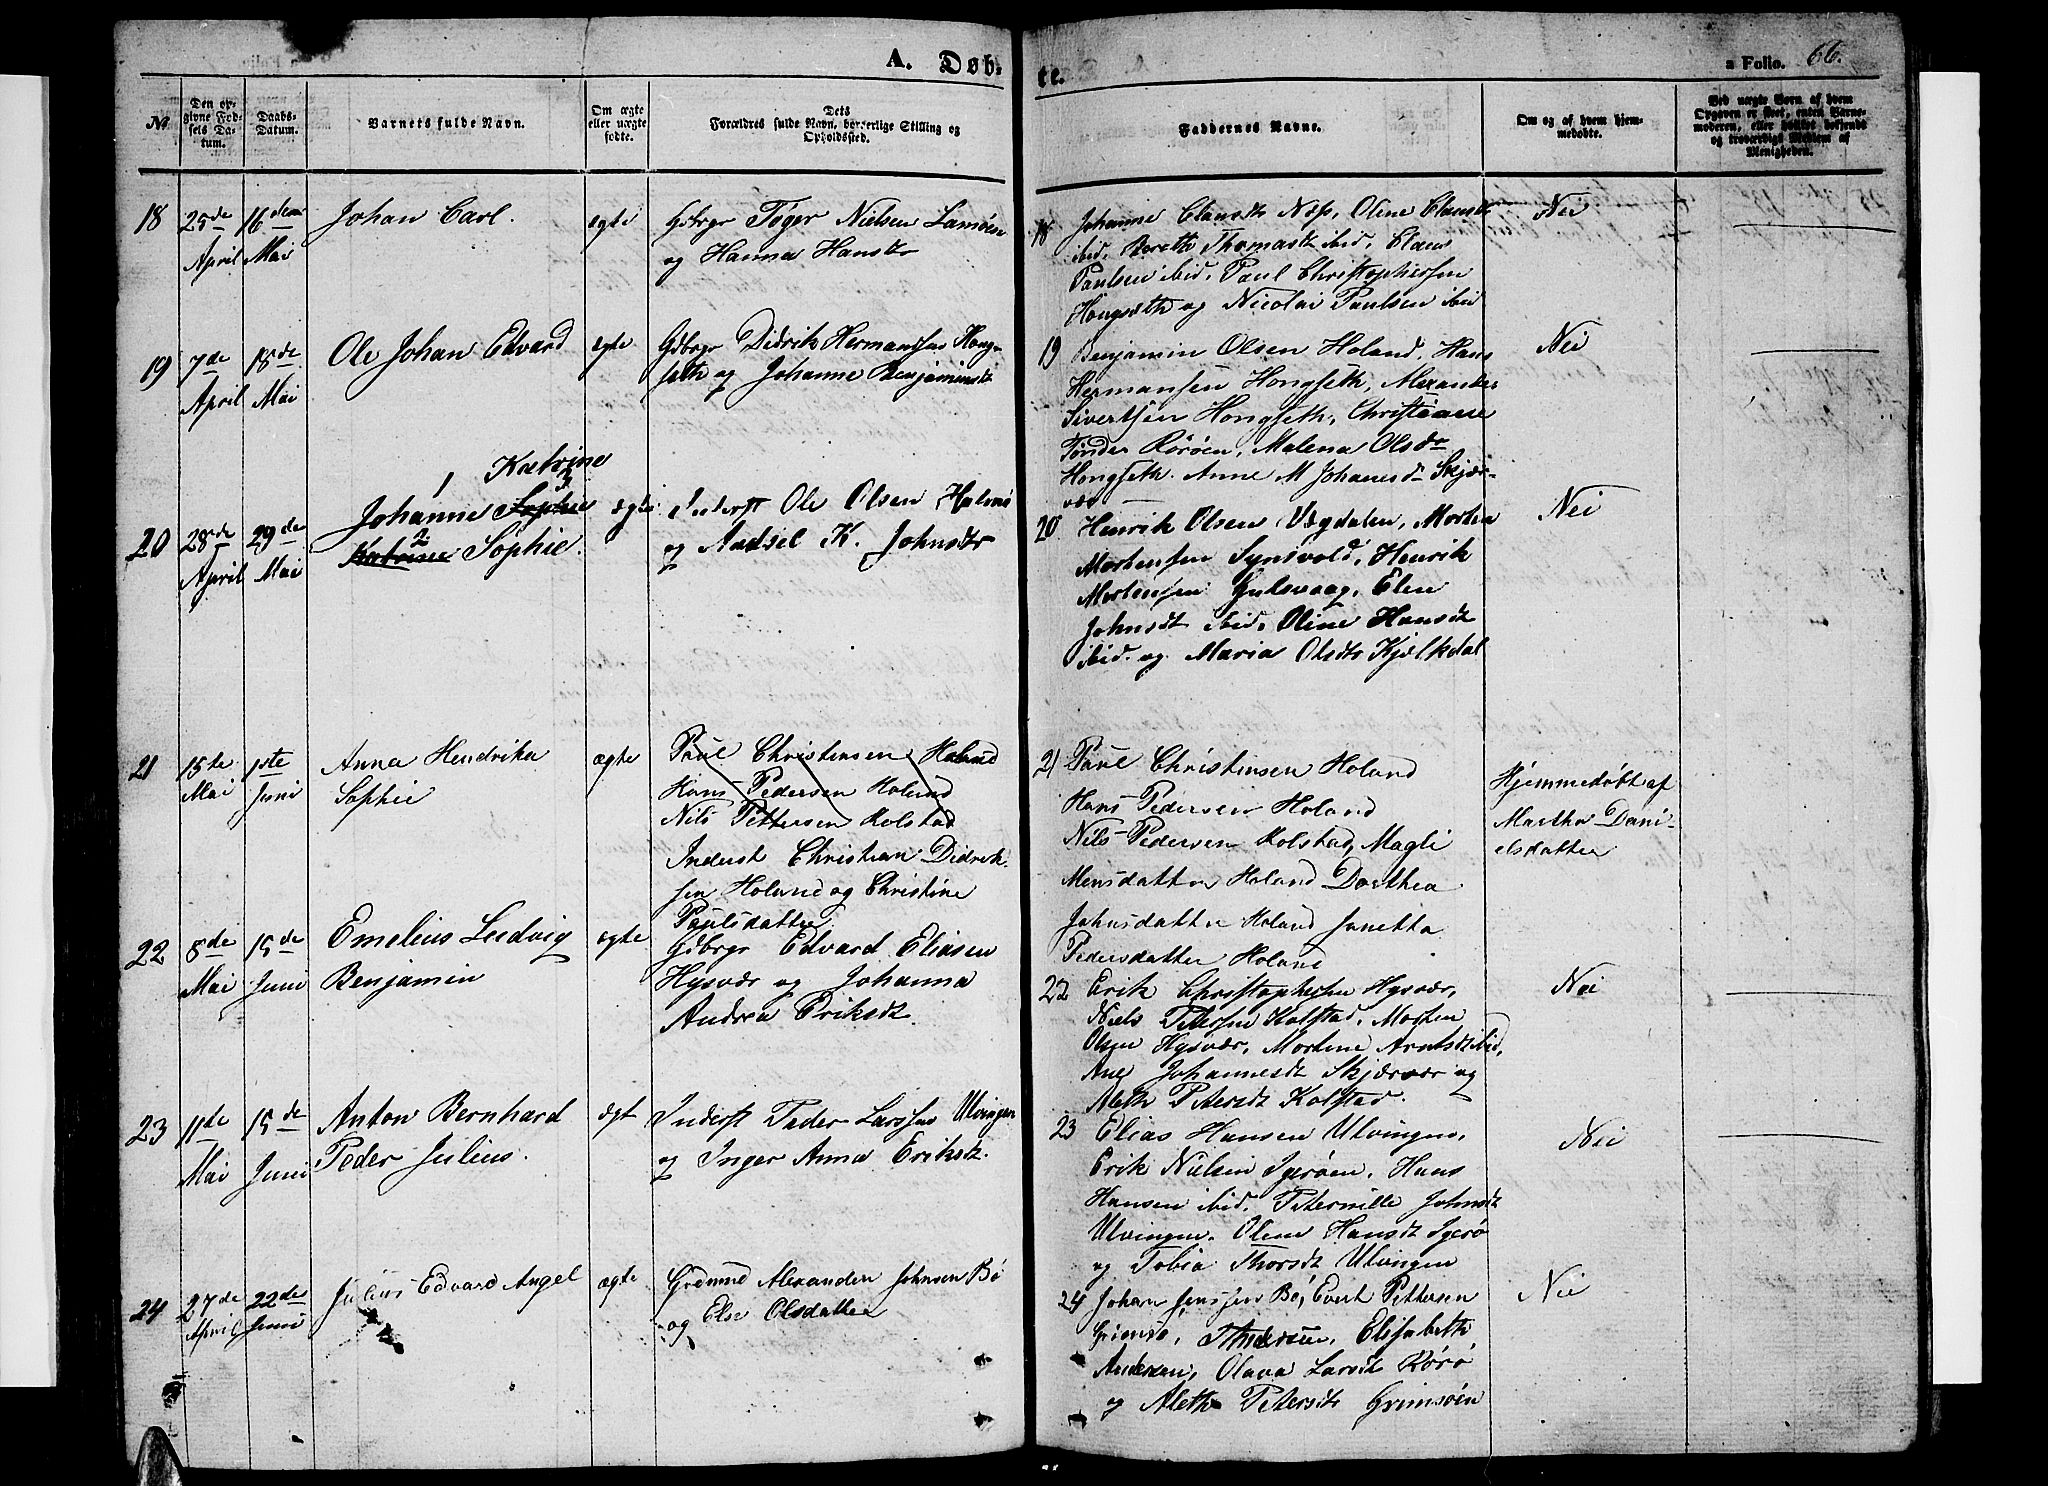 A. Døb-
te.
a Folio. 66.
No
Den op-
givne Fød-
sels Da-
tum.
Daabs-
Datum.
Barnets fulde Navn.
Om ægte
eller uægte
fødte.
Dets
Forældres fulde Navn, borgerlige Stilling og
Opholdssted.
Faddernes Navne.
Om og af hvem hjem-
medøbte.
Ved uægte Børn af hvem
Opgaven er skeet, enten Barne-
moderen, eller hvilket bekjendt
og troværdigt Medlem af
Menigheden.
18
25de
April
16den
Mai
Johan Carl.
egte
Gdbrgr Tøger Nielsen Lamøen
og Hanna Hansdtr
18
Johanne Clausdtr Næss, Oline Clausdtr
ibid, Bereth Thomasdt ibid, Claus
Paulsen ibid, Paul Christophersen
Hongseth og Nicolai Paulsen ibid
Nei
19
7de
April
18de
Mai
Ole Johan Edvard
egte
Gdbrgr Didrik Hermansen Hong-
seth og Johanne Benjaminsdt
19
Benjamin Olsen Holand, Hans
Hermansen Hongseth, Alexander
Sivertsen Hongseth, Christianse
Tønder Rørøen, Malena Olsdr
Hongseth. Anne M Johansd Skjær-
vær
Nei
20
28de
April
29de
Mai
1 Katrine
Johanne Sophie 3
2
Katrine Sophie.
ægte
Inderst Ole Olsen Halsnø
og Andsel K. Johnsdtr
20
Henrik Olsen Vægdalen, Morten
Mortensen Synsvold, Henrik
Mortensen Gulsvaag, Elen
Johnsdt ibid, Oline Hansdt
ibid. og Maria Olsdtr Kjælkdal
Nei
21
15te
Mai
1ste
Juni
Anna Hendrika
Sophie
ægte
Paul Christensen Holand
Hans Pedersen Holand
Nils Pettersen Kolstad
Inderst Christian Didrik-
sen Holand og Christine
Paulsdatter
21
Paul Christensen Holand
Hans Pedersen Holand
Nils Pedersen Kolstad, Magli
Mensdatter Holand Dorthea
Johnsdatter Holand Janetta
Pedersdatter Holand
Hjemmedøbt af
Martha Dani-
elsdatter
22
8de
Mai
15de
Juni
Emelius Ludvig
Benjamin
ægte
Gdbrgr Edvard Eliasen
Hysvær og Johanna
Andrea Eriksdt.
22
Erik Christophersen Hysvær,
Niels Petersen Kolstad, Morten
Olsen Hysvær, Mortine Arntsdt ibid,
Ane Johannesdt Skjærvær og
Aleth Petersdt Kolstad.
Nei
23
11te
Mai
15de
Juni
Anton Bernhard
Peder Julius.
ægt
Inderst Peder Larsen Ulvingen
og Inger Anna Eriksdt.
23
Elias Hansen Ulvingen,
Erik Nielsen Igerøen, Hans
Hansen ibid, Peternille Johnsdt
Ulvingen. Oline Hansdt Igerø
og Tobia Thorsdt Ulvingen
Nei
24
27de
April
22de
Juni
Julius Edvard Angel
ægte
Grdmnd Alexander Johnsen Bø
og Else Olsdatter
24
Johan Jensen Bø, Evert Pettersen
Grimsø, Andersen, Elisabeth
Andersen, Olava Larsdt Rørø
og Aleth Petersdtr Grimsøen
Nei